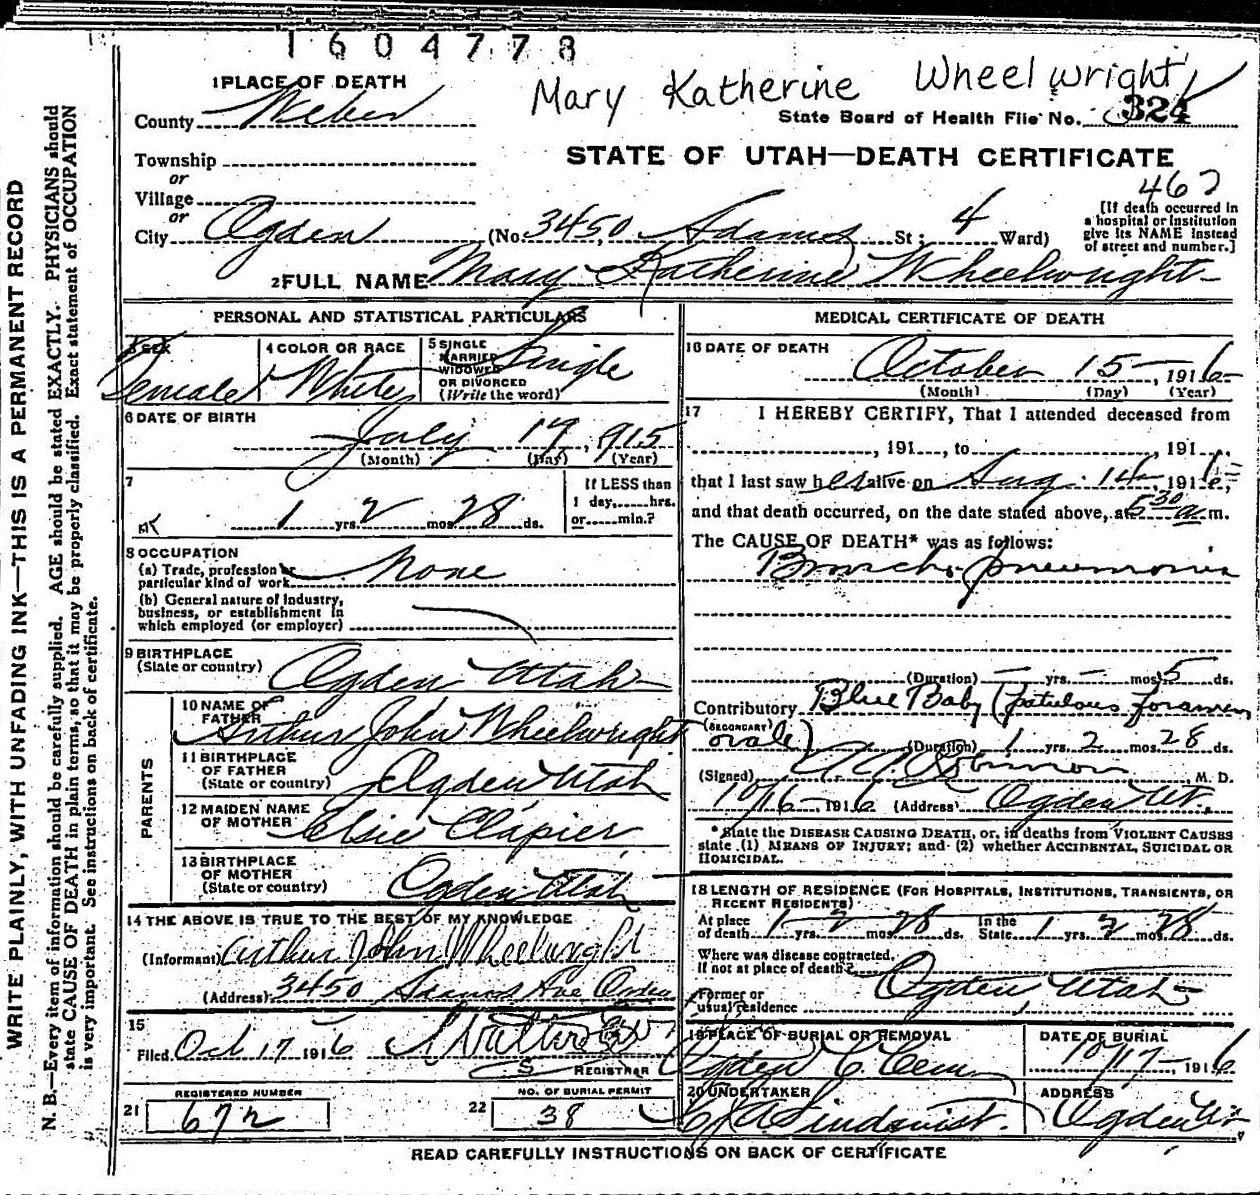 1604778
Mary Katherine Wheelwright
1 PLACE OF DEATH
County Weber
State Board of Health File No. 324
Township
or
STATE OF UTAH—DEATH CERTIFICATE
Village
or
462
City Ogden (No. 3450 Adams St; 4 Ward)
[If death occurred in
a hospital or institution
give its NAME instead
of street and number.]
2 FULL NAME Mary Katherine Wheelwright
PERSONAL AND STATISTICAL PARTICULARS
3 SEX Female
4 COLOR OR RACE White
5 SINGLE
MARRIED
WIDOWED
OR DIVORCED
(Write the word) Single
6 DATE OF BIRTH
July 19, 1915
(Month) (Day) (Year)
7
1 yrs. 2 mos. 28 ds.
If LESS than
1 day,......hrs.
or......min.?
8 OCCUPATION
(a) Trade, profession or
particular kind of work None
(b) General nature of industry,
business, or establishment in
which employed (or employer)
9 BIRTHPLACE
(State or country) Ogden Utah
PARENTS
10 NAME OF
FATHER Arthur John Wheelwright
11 BIRTHPLACE
OF FATHER
(State or country) Ogden Utah
12 MAIDEN NAME
OF MOTHER Elsie Clapier
13 BIRTHPLACE
OF MOTHER
(State or country) Ogden Utah
14 THE ABOVE IS TRUE TO THE BEST OF MY KNOWLEDGE
(Informant) Arthur John Wheelwright
(Address) 3450 Adams Ave Ogden
15
Filed Oct 17 1916
REGISTRAR
REGISTERED NUMBER
21 672
NO. OF BURIAL PERMIT
22 38
MEDICAL CERTIFICATE OF DEATH
16 DATE OF DEATH
October 15—, 1916
(Month) (Day) (Year)
17 I HEREBY CERTIFY, That I attended deceased from
, 191 , to , 191
that I last saw her alive on Aug. 14, 1916,
and that death occurred, on the date stated above, at 5 30 a m.
The CAUSE OF DEATH* was as follows:
Broncho-pneumonia
(Duration) — yrs. — mos. 5 ds.
Contributory Blue Baby (patulous foramen
(SECONDARY) ovale) (Duration) 1 yrs. 2 mos. 28 ds.
(Signed) Robinson, M. D.
10/16—1916 (Address) Ogden Ut.
*State the DISEASE CAUSING DEATH, or, in deaths from VIOLENT CAUSES
state (1) MEANS OF INJURY; and (2) whether ACCIDENTAL, SUICIDAL OR
HOMICIDAL.
18 LENGTH OF RESIDENCE (FOR HOSPITALS, INSTITUTIONS, TRANSIENTS, OR
RECENT RESIDENTS)
At place
of death 1 yrs. 2 mos. 28 ds. In the
State 1 yrs. 2 mos. 28 ds.
Where was disease contracted,
if not at place of death?
Former or
usual residence Ogden Utah
19 PLACE OF BURIAL OR REMOVAL
Ogden C. Cem
DATE OF BURIAL
10/17—, 1916
20 UNDERTAKER
Lindquist.
ADDRESS
Ogden Ut
READ CAREFULLY INSTRUCTIONS ON BACK OF CERTIFICATE
WRITE PLAINLY, WITH UNFADING INK—THIS IS A PERMANENT RECORD
N. B.—Every item of information should be carefully supplied. AGE should be stated EXACTLY. PHYSICIANS should
state CAUSE OF DEATH in plain terms, so that it may be properly classified. Exact statement of OCCUPATION
is very important. See instructions on back of certificate.